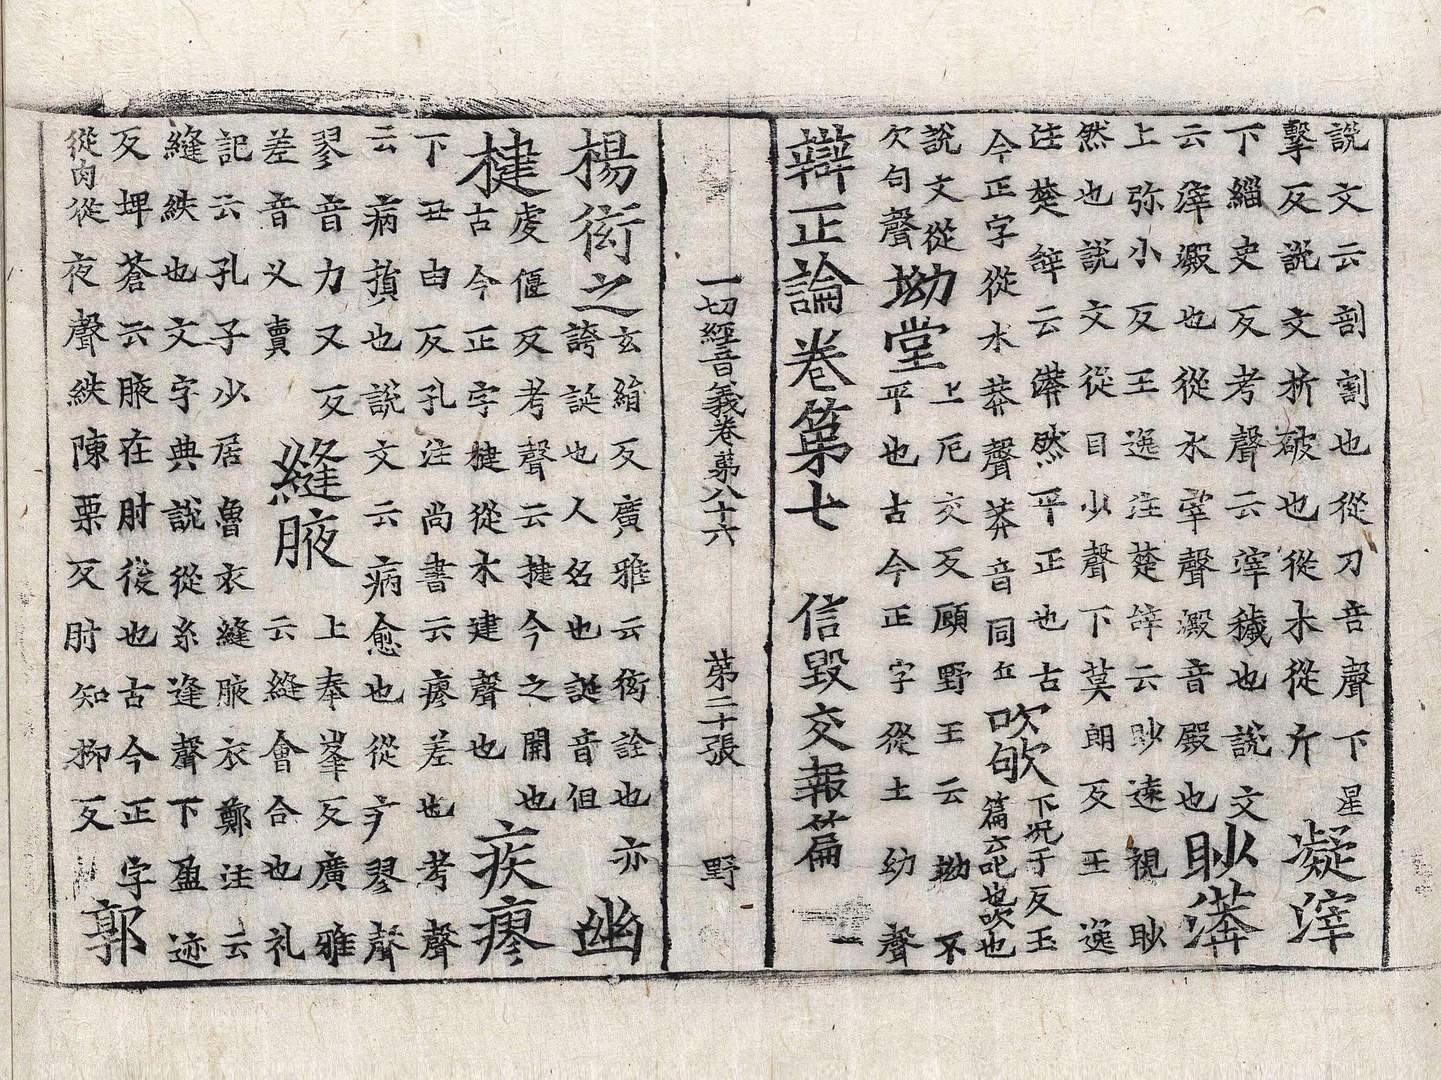 說文云剖割也從刀咅聲下星
擊反說文析破也從木從斤
凝滓
下緇史反考聲云滓穢也說文
云滓澱也從水宰聲澱音殿也
眇漭
上弥小反王逸注楚辝云眇遠視眇
然也說文從目少聲下莫朗反王逸
注楚辝云漭然平正也古
今正字從水莽聲莽音同
吹欨
下况于反玉
篇云欨也吹也
說文從
欠句聲
坳堂
上厄交反顧野王云坳不
平也古今正字從土幼聲
辯正論卷第七 信毀交報篇 一
一切經音義卷第八十六 第二十張 野
楊衒之
玄絢反廣雅云衒詮也亦
誇誕也人名也誕音但
幽
楗
虔偃反考聲云揵今之開也
古今正字楗從木建聲也
疾瘳
下丑由反孔注尚書云瘳差也考聲
云病損也說文云病愈也從疒翏聲
翏音力又反
差音乂賣
縫腋
上奉峯反廣雅
云縫會合也礼
記云孔子少居魯衣縫腋衣鄭注云
縫紩也文字典說從糸逢聲下盈迹
反埤蒼云腋在肘後也古今正字
從肉從夜聲紩陳栗反肘知柳反
郭